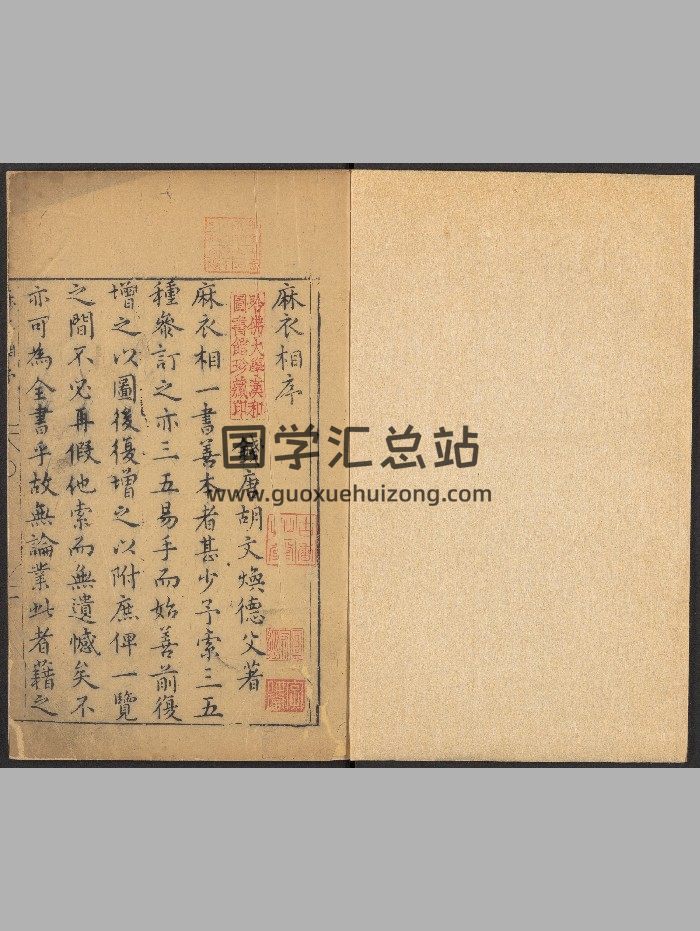 麻衣相序
錢唐胡文煥德父著
麻衣相一書善本者甚少予索三五
種參訂之亦三五易手而始善前復
增之以圖後復增之以附庶俾一覽
之間不必再假他索而無遺憾矣不
亦可為全書乎故無論業此者藉之
哈佛大學漢和
圖書館珍藏印
国学汇总站
www.guoxuehuizong.com